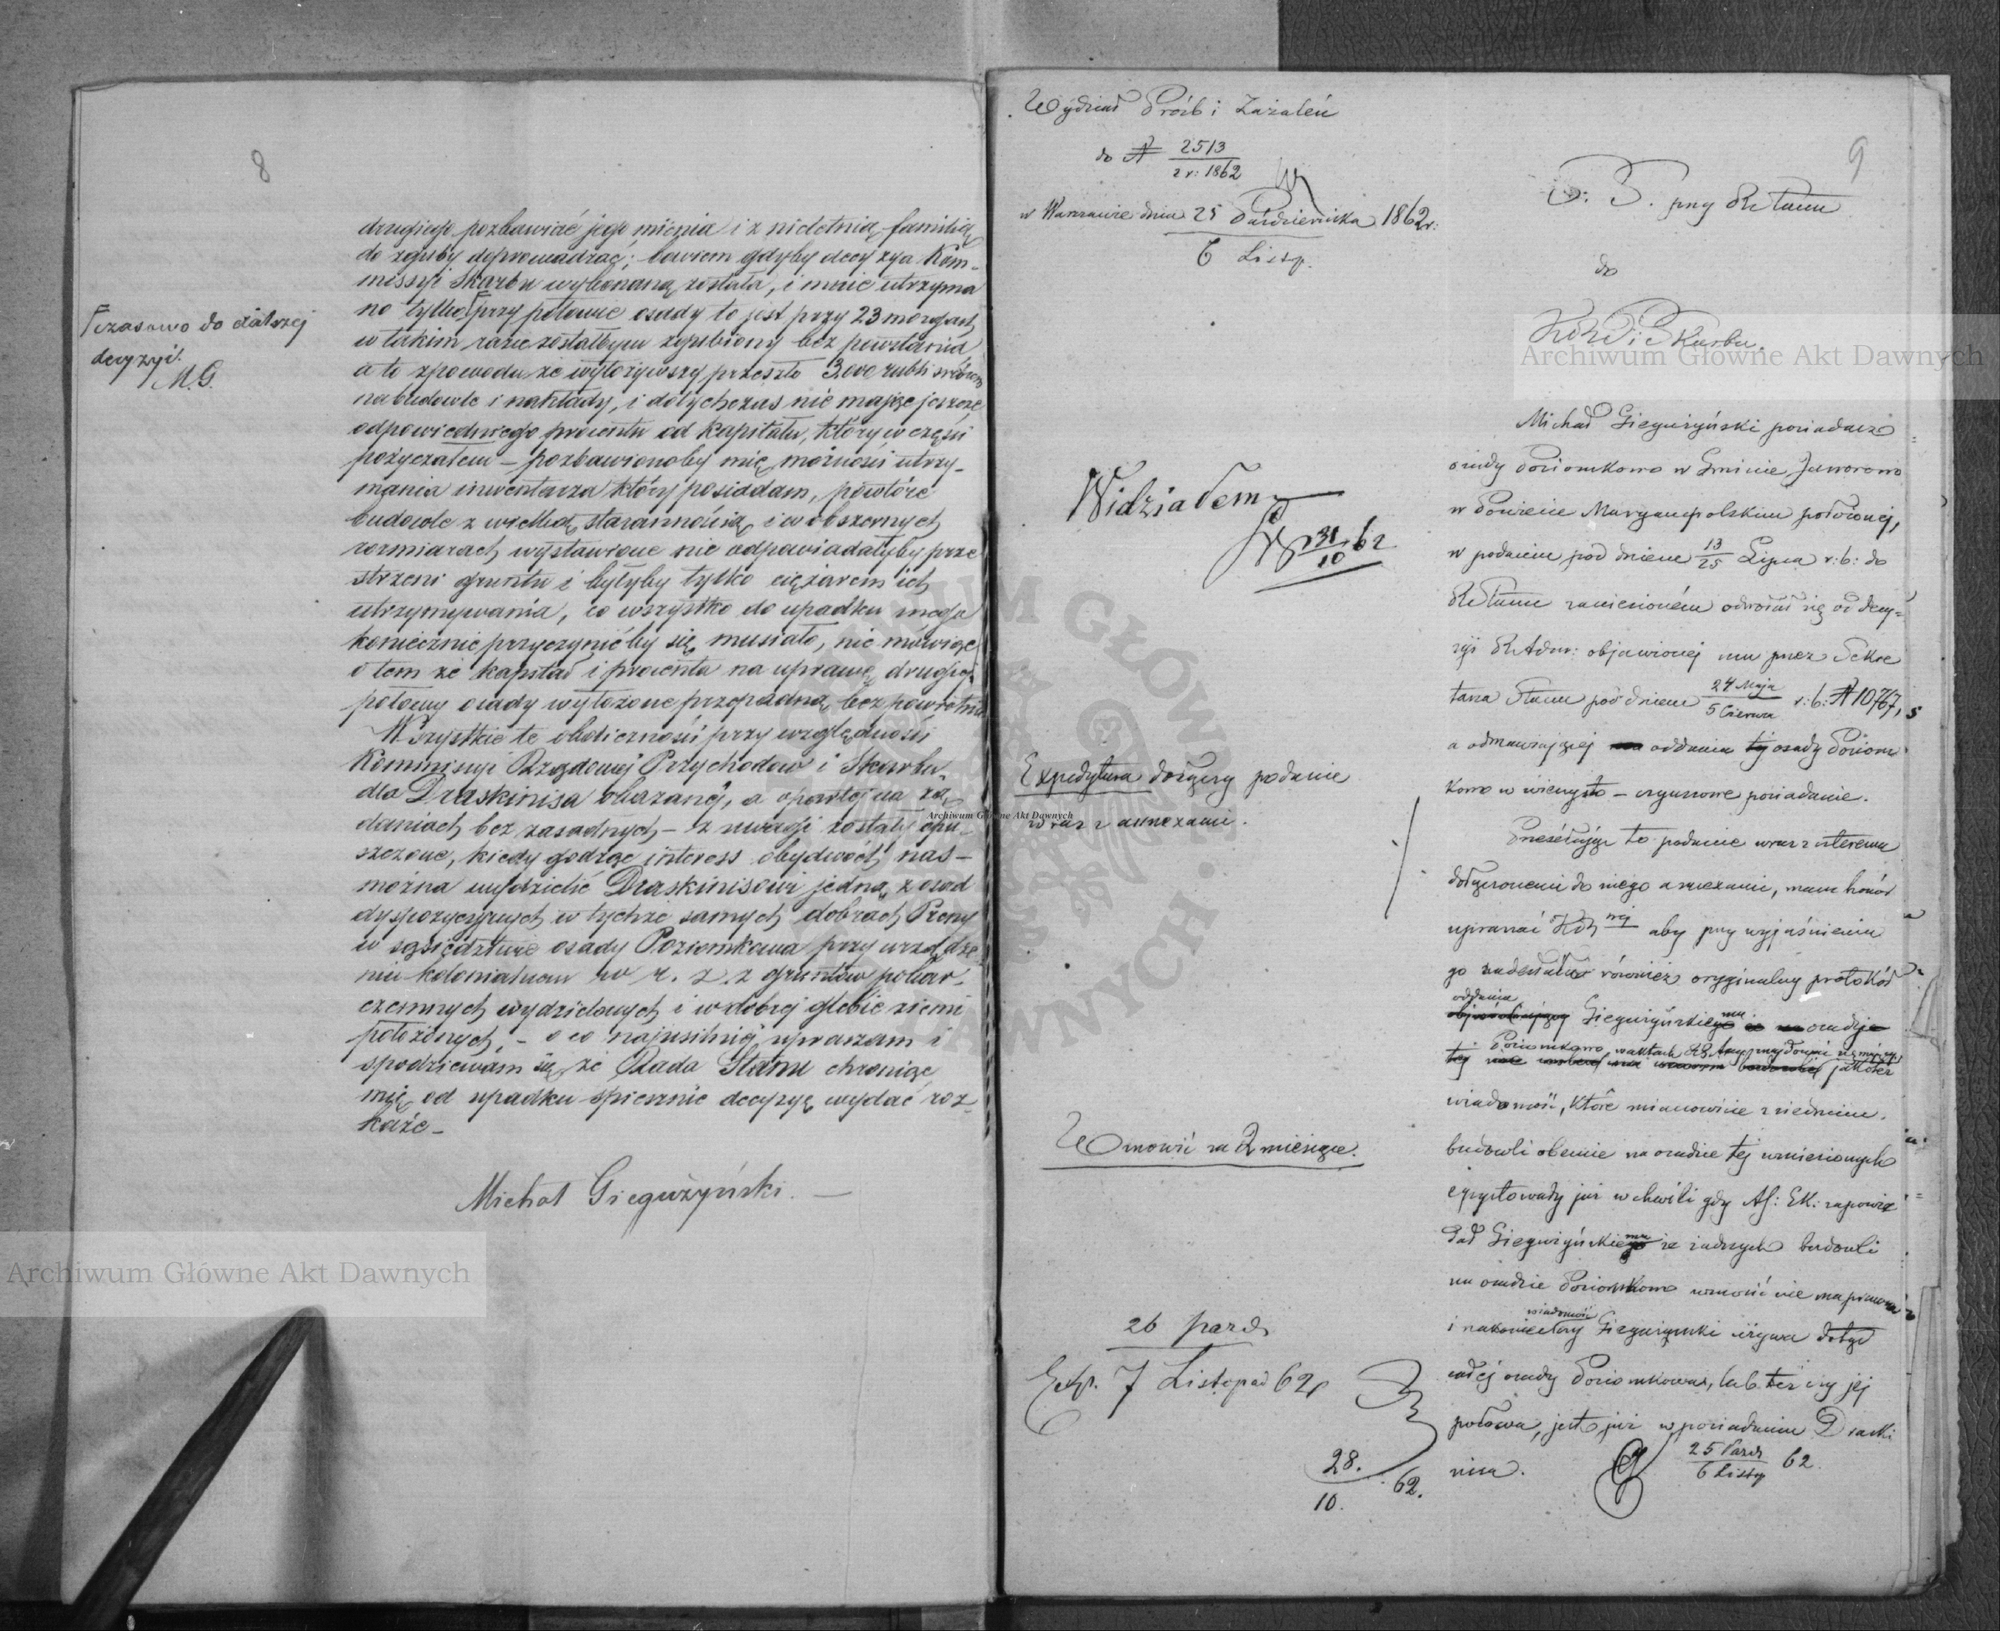 8
drugiego pozbawiać jego mienia i z nieletnią familią
do zguby doprowadzać; bowiem gdyby decyzya Kom-
missyi Skarbu wykonaną została, i mnie utrzyma
no tylko przy połowie osady to jest przy 23 morgach
w takim razie zostałbym zgubiony bez powstania
a to z powodu że wyłożywszy przeszło 3,000 rubli srebrem
na budowle i nakłady, i dotychczas nie mając jeszcze
odpowiedniego procentu od kapitału, który w części
pożyczałem – pozbawionoby mię możności utrzy-
mania inwentarza który posiadam, powtóre
budowle z wielką starannością i w obszernych
rozmiarach wystawione nie odpowiadałyby prze
strzeni gruntu i byłyby tylko ciężarem ich
utrzymywania, co wszystko do upadku mego
koniecznie przyczynićby się musiało, nie mówiąc
o tem że kapitał i procenta na uprawę drugiej
połowy osady wyłożone przepadną bezpowrotnie
Wszystkie te okoliczności przy względności
Kommissyi Rządowej Przychodów i Skarbu
dla Draskinisa okazanej, a opartej na żą
daniach bez zasadnych – z uwagi zostały opu-
szczone, kiedy godząc interess obydwóch nas –
można wydzielić Draskinisowi jedną z osad
dyspozycyjnych w tychże samych dobrach Preny
w sąsiedztwie osady Poziomkowa przy urządze
niu kolonialnem w r. z. z gruntów poliar-
czemnych wydzielonych i w dobrej glebie ziemi
położonych, – o co najusilniej upraszam i
spodziewam się że Rada Stanu chroniąc
mię od upadku śpiesznie decyzyę wydać roz-
każe –
Michał Gieguzyński. –
czasowo do dalszej
decyzyi.
M.G.
Wydział Próśb i Zażaleń
do № 2513
z r: 1862
w Warszawie dnia 25 Października 1862 r.
6 Listp.
9
przy RStanu
do
Skarbu.
Widziałem
31
10 62
Expedytura dołączy podanie
wraz z annexami.
Wnowić za 2 miesiące.
26 paźdz
Exp. 7 Listopad 62
28.
10. 62.
Michał Gieguzyński posiadacz
osady Poziomkowo w Gminie Jaworowo
w Powiecie Maryampolskim położonej,
w podaniu pod dniem 13/25 Lipca r: b: do
RStanu zaniesionem odwołał się od decy-
zyi RAdm: objawionej mu przez Sekre
tarza Stanu pod dniem 24 Maja/5 Czerwca r: b: № 10767,
a odmawiającej oddania tej osady Poziom
kowo w wieczysto – czynszowe posiadanie.
Przesyłając to podanie wraz z
dołączonemi do niego annexami, mam honor
upraszać aby przy wyjaśnieniu
go nadesłała również oryginalny protokół
oddania Gieguzyńskiemu osady
Poziomkowo jakoteż
wiadomość, które mianowicie z siedmiu
budowli obecnie na osadzie tej wzniesionych
egzystowały już w chwili gdy zapowie
dał Gieguzyńskiemu że żadnych budowli
na osadzie Poziomkowo wznosić nie ma prawa
i nakoniec wiadomość czy Gieguzyński używa dotąd
całej osady Poziomkowo, lub też czy jej
połowa, jest już w posiadaniu Draski
nisa.
25 Paźdz
6 Listop 62.
Archiwum Główne Akt Dawnych
Archiwum Główne Akt Dawnych
Archiwum Główne Akt Dawnych